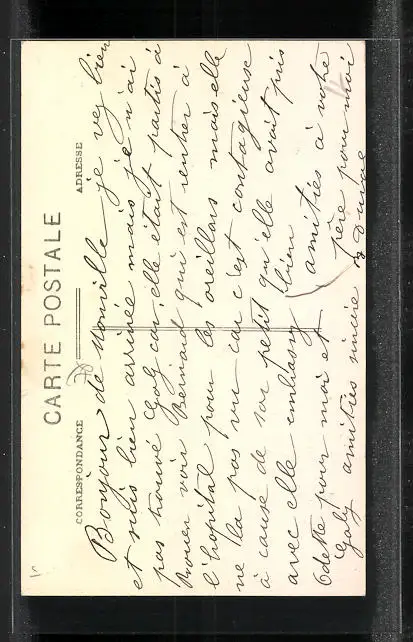 CARTE POSTALE
CORRESPONDANCE
ADRESSE
Bonjour de Monville je vez bien
et suis bien arrivée mais je n'ai
pas trouvé Gaby car elle était partis à
Rouen voir Bernard qui est rentrer à
l'hopital pour les oreillons mais elle
ne la pas vu car c'est contagieuse
à cause de son petit qu'elle avait pris
avec elle embrassy bien
Odette pour moi et
amitiés à votre
père pour moi
Gaby amitiés sincère